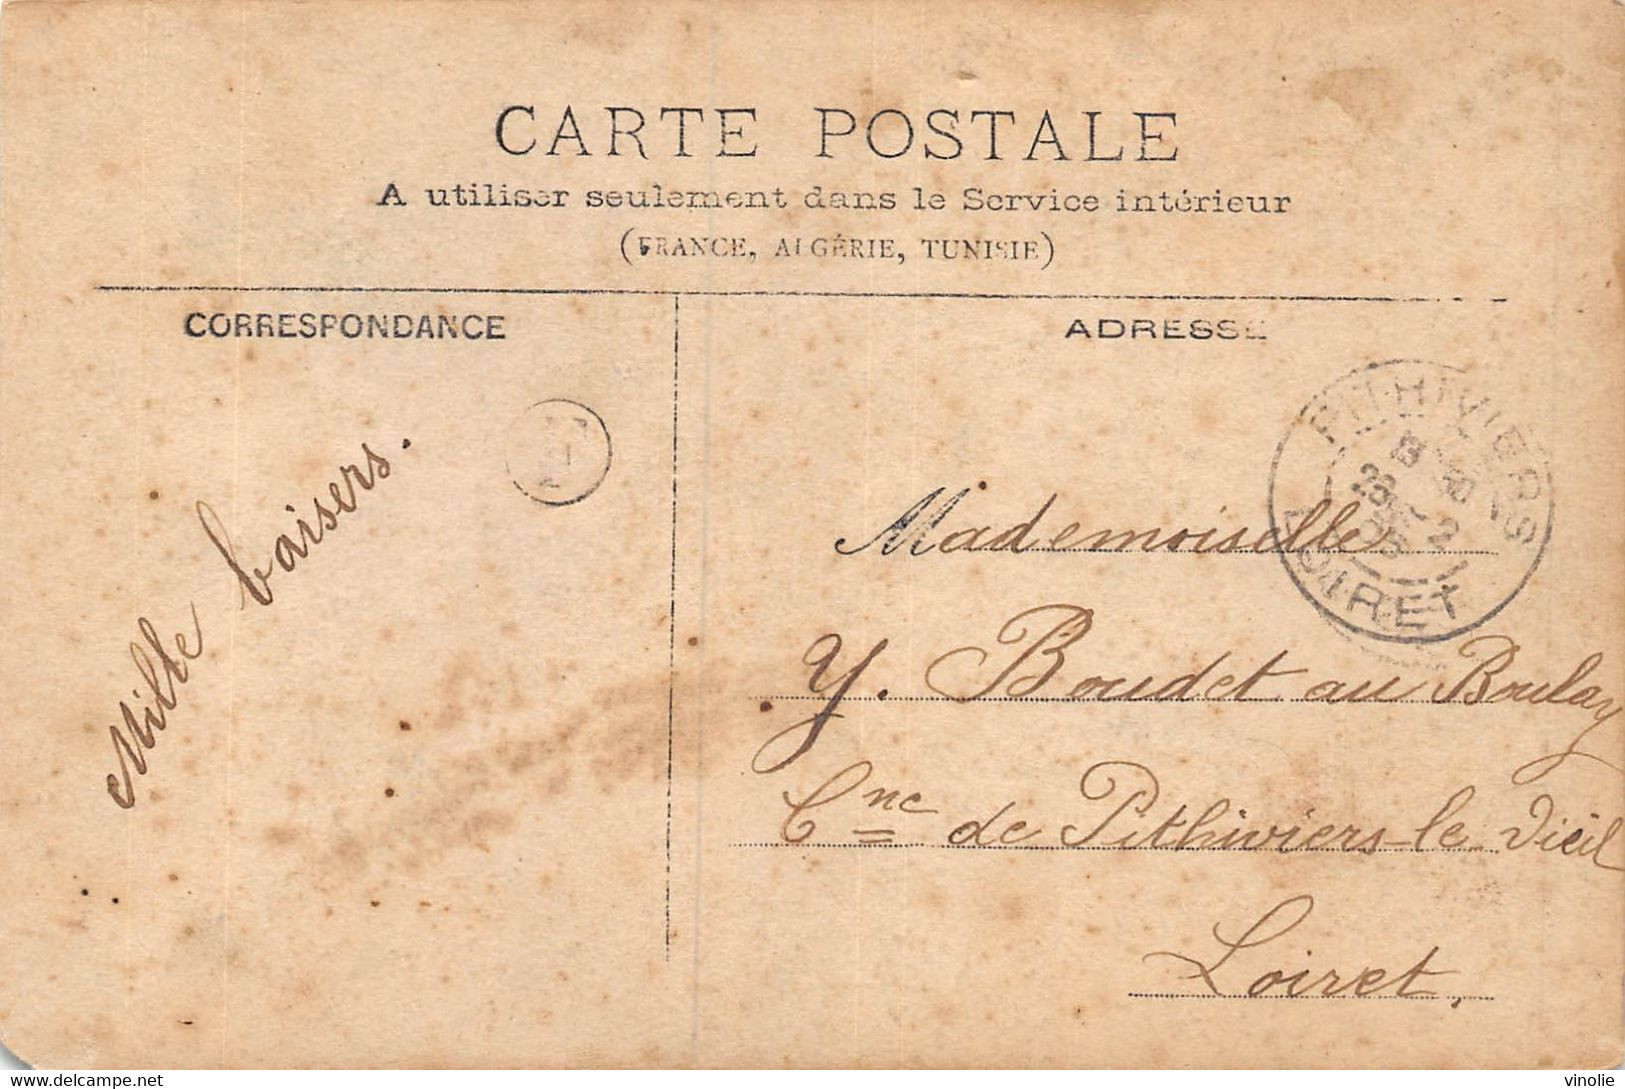 CARTE POSTALE
A utiliser seulement dans le Service intérieur
(FRANCE, ALGÉRIE, TUNISIE)
CORRESPONDANCE
ADRESSE
Mille baisers.
PITHIVIERS
LOIRET
Mademoiselle
Y. Boudet au Boulay
Cne de Pithiviers-le Vieil
Loiret.
https://www.delcampe.net
vinolie